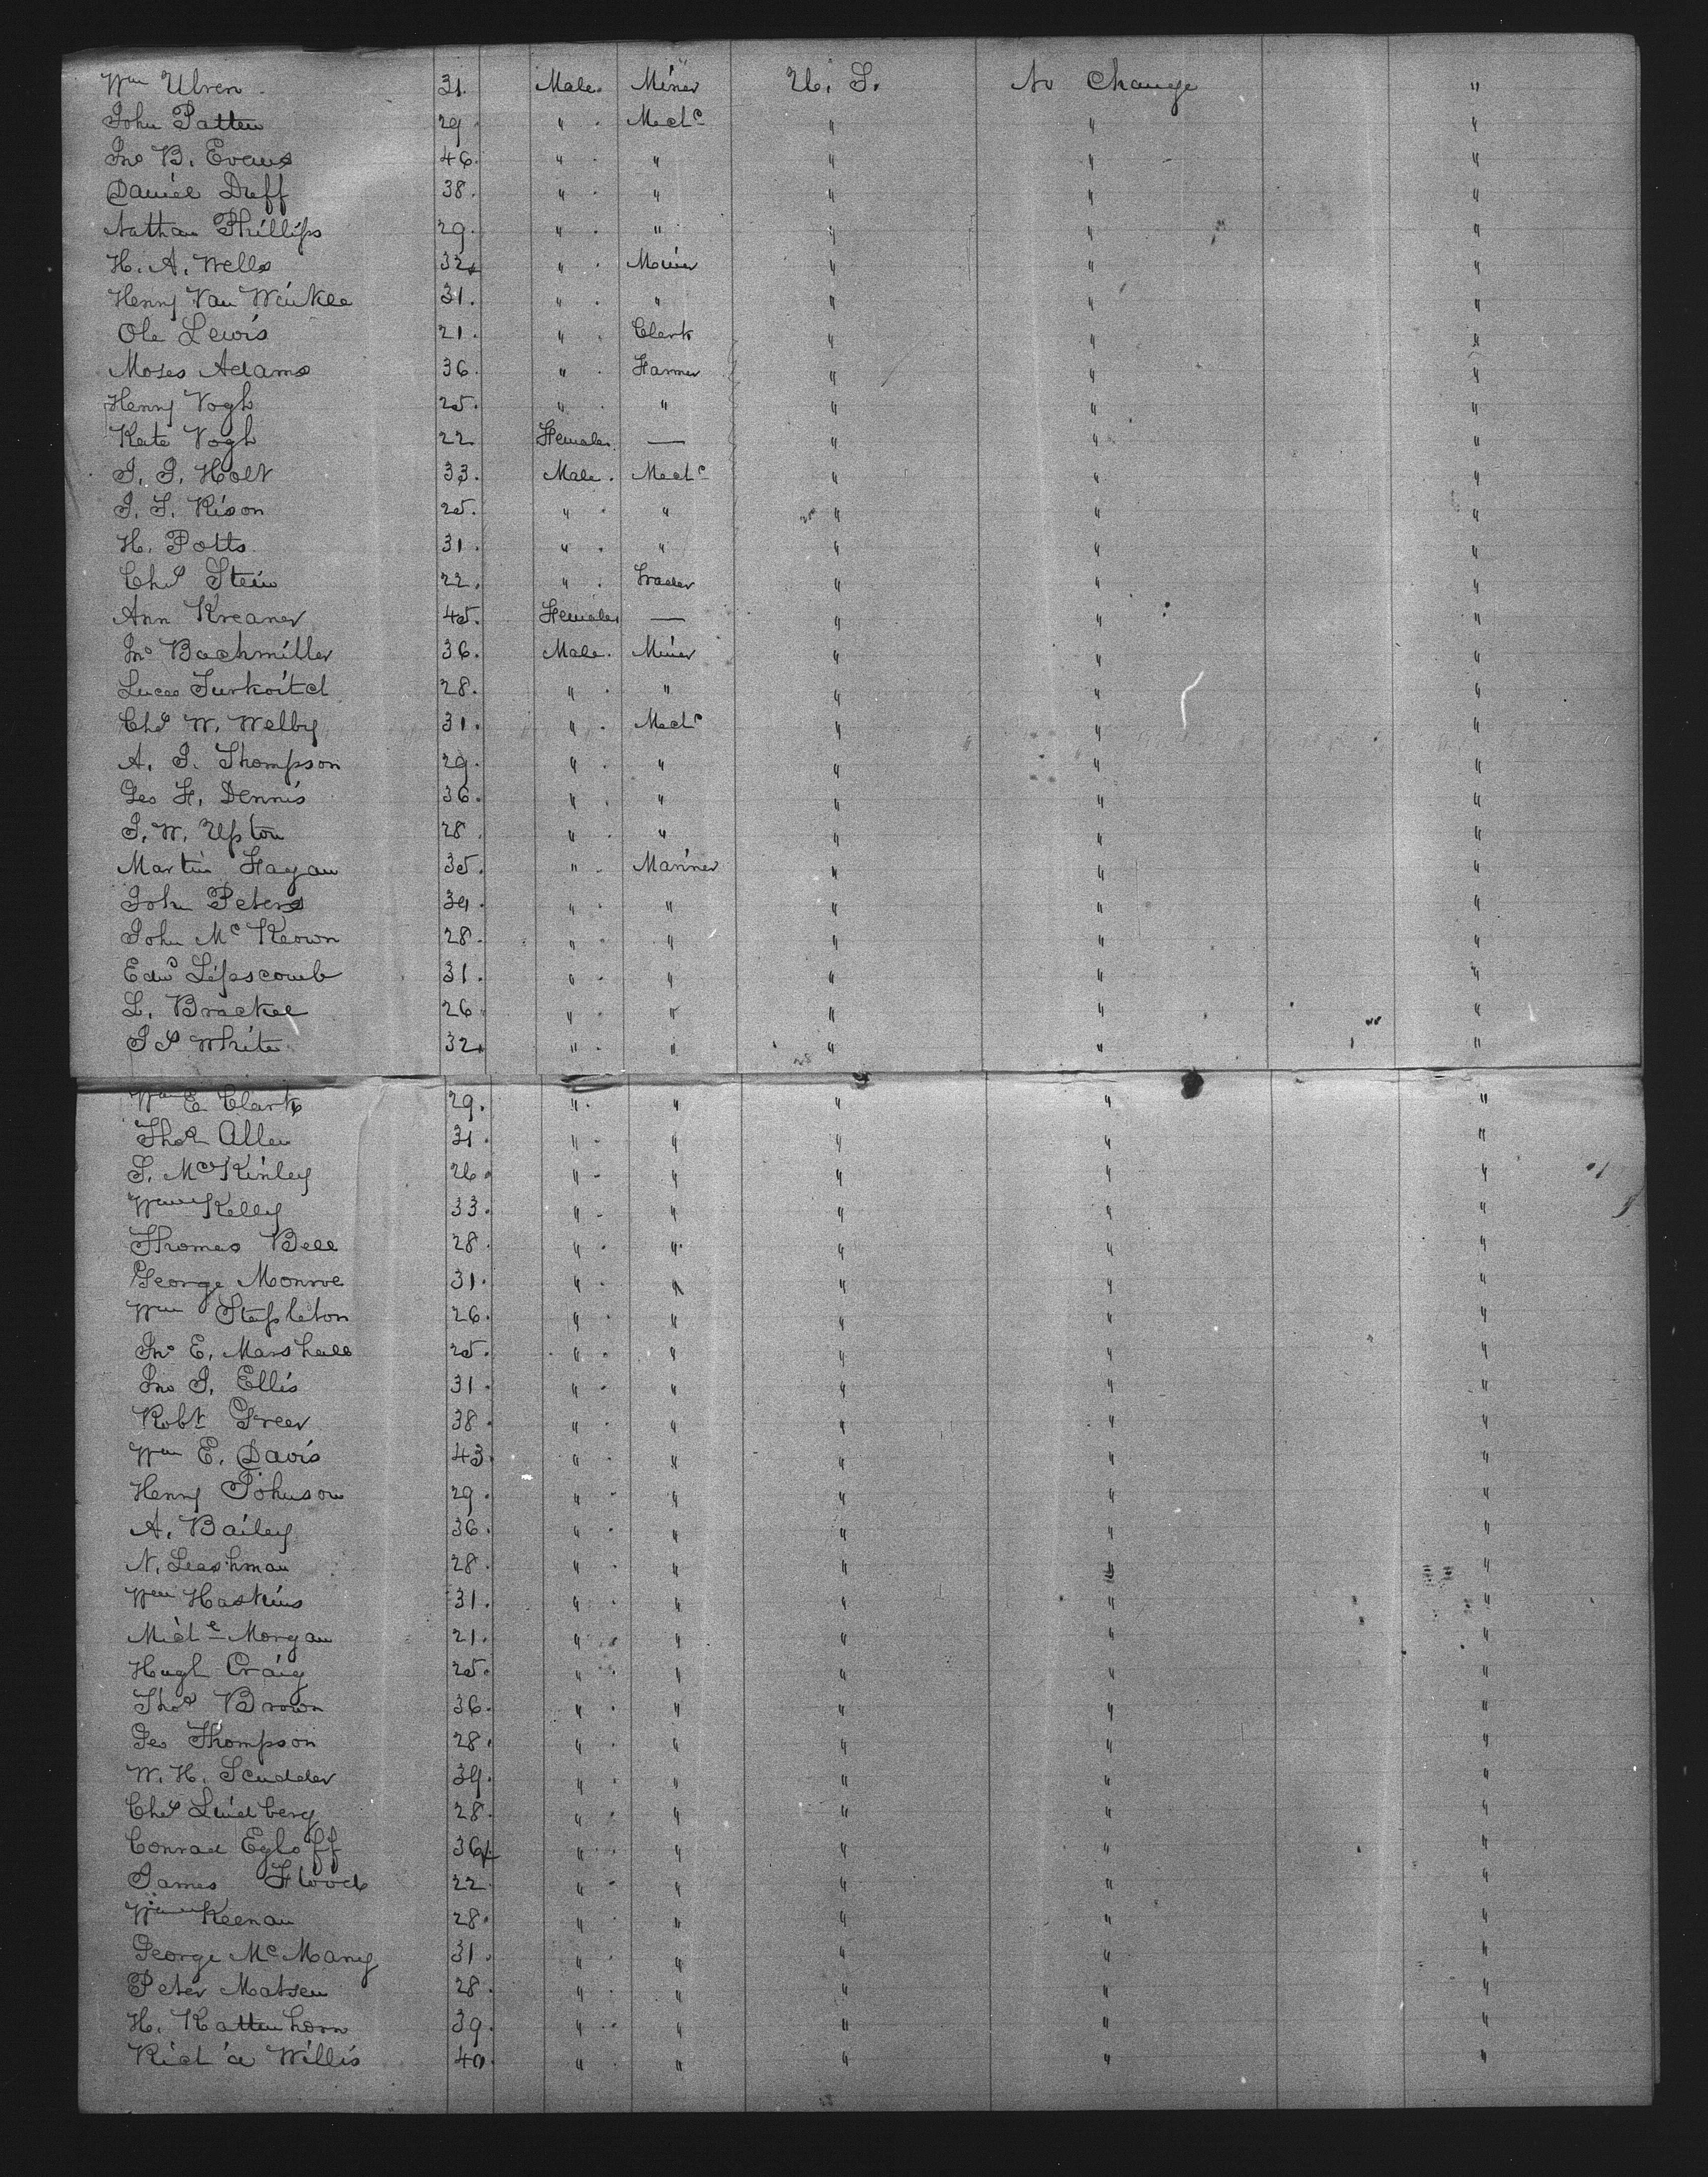 Wm Ulven 31. Male. Miner U. S. No Change "
John Patten 29. " Mechc " " "
Jno B. Evans 46. " " " " "
Daniel Duff 38. " " " " "
Nathan Phillips 29. " " " " "
H. A. Wells 32. " Miner " " "
Henry Van Winkle 31. " " " " "
Ole Lewis 21. " Clerk " " "
Moses Adams 36. " Farmer " " "
Henry Vogh 25. " " " " "
Kate Vogh 22 Female. — " " "
J. J. Holt 33. Male. Mechc " " "
J. S. Kison 25. " " " " "
H. Potts 31. " " " " "
Chs Stein 22. " Trader " " "
Ann Kreaner 45. Female. — " " "
Jno Bachmiller 36. Male. Miner " " "
Lucas 28. " " " " "
Chs W. Welby 31. " Mechc " " "
A. J. Thompson 29. " " " " "
Geo F. Dennis 36. " " " " "
J. W. Upton 28. " " " " "
Martin Fagan 35. " Mariner " " "
John Peters 39. " " " " "
John Mc Keown 28. " " " " "
Edwd Lipscomb 31. " " " " "
L. Brackel 26 " " " " "
J S White 32. " " " " "
Wm E Clark 29. " " " " "
Thos Allen 31. " " " " "
S. McKinley 26. " " " " "
Wm Kelly 33. " " " " "
Thomas Bell 28. " " " " "
George Monroe 31. " " " " "
Wm Stapleton 26. " " " " "
Jno E. Marshall 25. " " " " "
Jno J. Ellis 31. " " " " "
Robt Greer 38. " " " " "
Wm E. Davis 43. " " " " "
Henry Johnson 29. " " " " "
A. Bailey 36. " " " " "
N. Leashman 28. " " " " "
Wm Haskins 31. " " " " "
Michl Morgan 21. " " " " "
Hugh Craig 25. " " " " "
Thos Brown 36. " " " " "
Geo Thompson 28. " " " " "
W. H. Scudder 39. " " " " "
Chs Lindberg 28. " " " " "
Conrad Egloff 36 " " " " "
James Flood 22 " " " " "
Wm Keenan 28. " " " " "
George McMany 31. " " " " "
Peter Matsen 28. " " " " "
H. Kattenhorn 39. " " " " "
Rich'd Willis 40. " " " " "